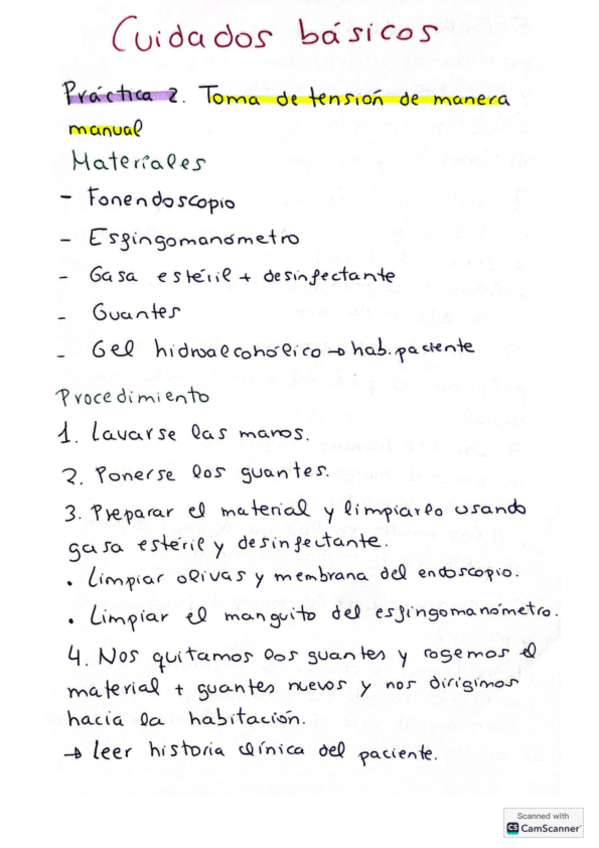 Cuidados básicos
Práctica 2. Toma de tensión de manera
manual
Materiales
- Fonendoscopio
- Esfingomanómetro
- Gasa estéril + desinfectante
- Guantes
- Gel hidroalcohólico → hab. paciente
Procedimiento
1. Lavarse las manos.
2. Ponerse los guantes.
3. Preparar el material y limpiarlo usando
gasa estéril y desinfectante.
• Limpiar olivas y membrana del endoscopio.
• Limpiar el manguito del esfingomanómetro.
4. Nos quitamos los guantes y cogemos el
material + guantes nuevos y nos dirigimos
hacia la habitación.
→ leer historia clínica del paciente.
Scanned with
CS CamScanner